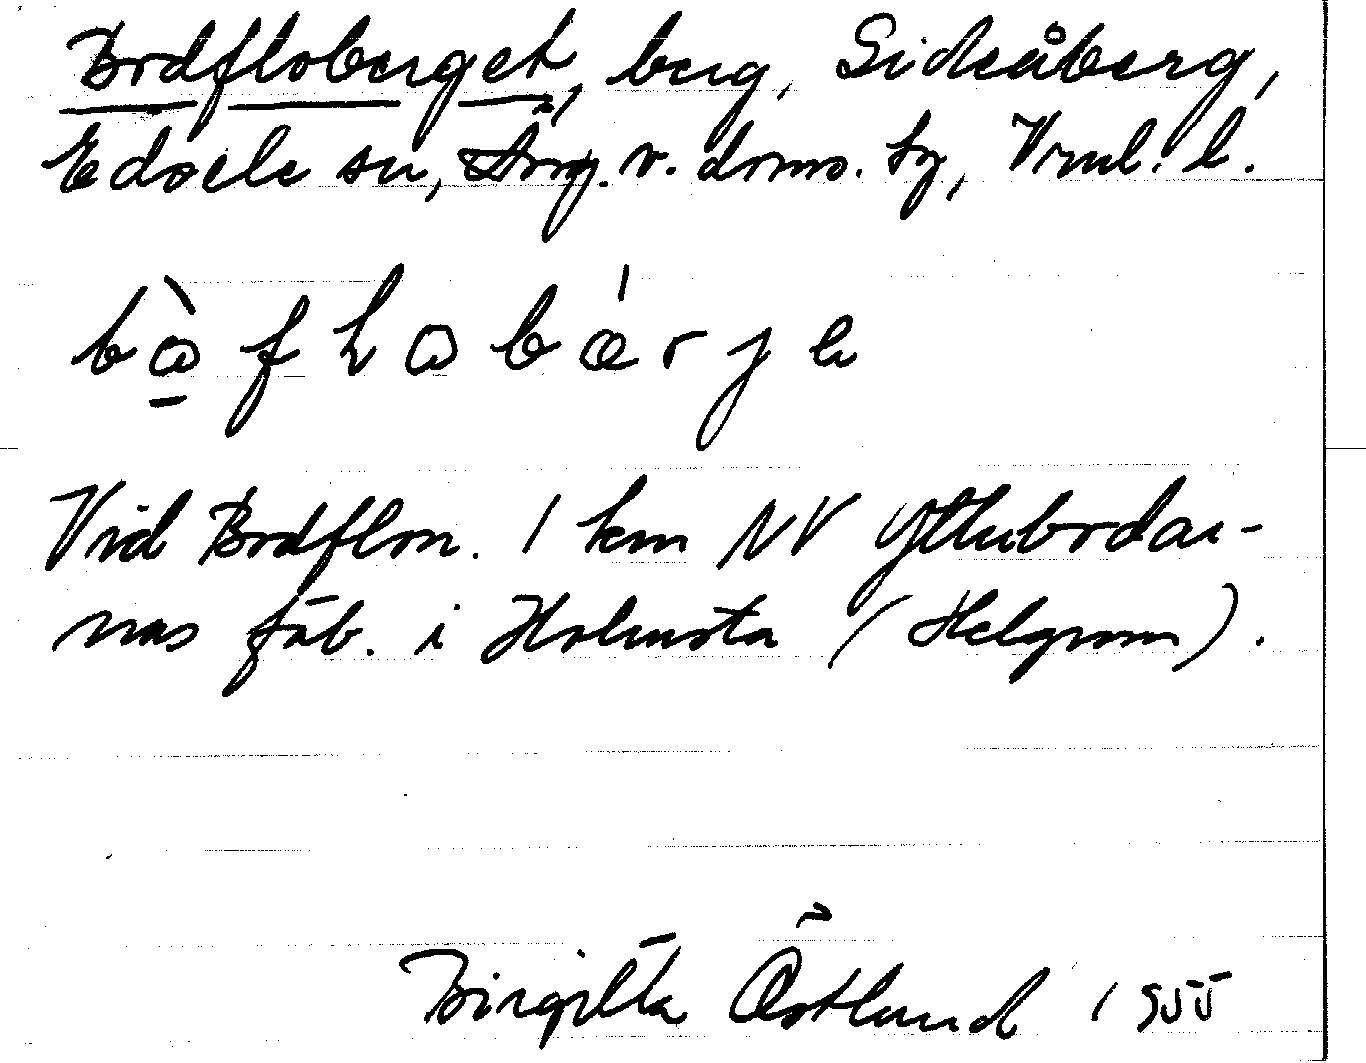 Bodfloberget, berg, Sideåberg,
Edsele sn, Ång. v. doms. sg, Vrnl. l.
bàfhobárje
Vid Bodflon. 1 km NV Ytterbodar-
nas fäb. i Holmsta (Helgum).
Birgitta Östlund 1955